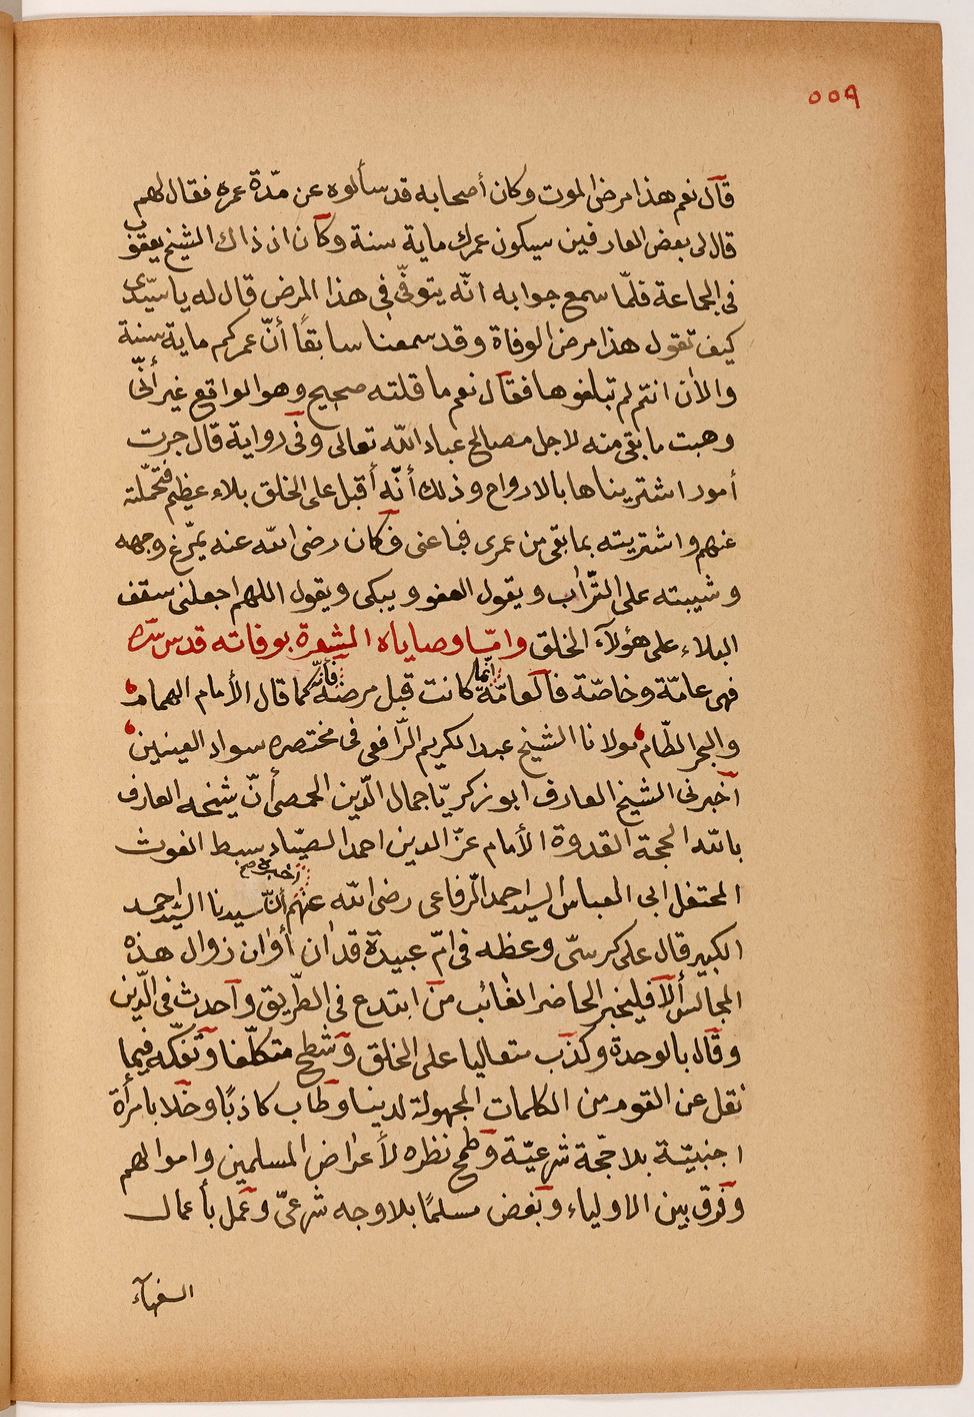 ٥٥٩
قال نعم هذا مرض الموت وكان أصحابه قد سألوه عن مدّة عمره فقال لهم
قال لى بعض العارفين سيكون عمرك ماية سنة وكان ان ذاك الشيخ يعقوب
فى الجماعة فلمّا سمع جوابه انّه يتوفّى فى هذا المرض قال له يا سيّدى
كيف تقول هذا مرض الوفاة وقد سمعنا سابقًا أنّ عمركم ماية سنة
والاٰن انتم لم تبلغوها فقال نعم ما قلته صحيح وهو الواقع غير أنّى
وهبت ما بقى منه لاجل مصالح عباد الله تعالى وفى رواية قال جرت
أمور اشتريناها بالارواح وذلك أنّه أقبل على الخلق بلاء عظيم فتحمّلته
عنهم واشتريته بما بقى من عمرى فباعنى فكان رضى الله عنه يمرّغ وجهه
وشيبته على التّراب ويقول العفو ويبكى ويقول اللهم اجعلنى سقف
البلاء على هؤلآء الخلق وامّا وصاياه المشعرة بوفاته قدس سّره
فهى عامّة وخاصّة فالعامّة انما كانت قبل مرضه فأنّه كما قال الأمام الهمام
والبحر الطّام مولانا الشيخ عبد الكريم الرّافعى فى مختصره سواد العينين
أخبرنى الشيخ العارف ابو زكريّا جمال الدّين الحمصى أنّ شيخه العارف
بالله الحجة القدوة الأمام عزّ الدين احمد الصيّاد سبط الغوث
المحتفل ابى العباس السيد احمد الرّفاعى رضى الله عنهم أخبره صح أنّ سيدنا السّيد احمد
الكبير قال على كرسّى وعظه فى امّ عبيدة قد اٰن أوان زوال هذه
المجالس ألآ فليخبر الحاضر الغائب من ابتدع فى الطّريق وأحدث فى الدّين
وقال بالوحدة وكذب متعاليا على الخلق وشطح متكلّفا وتفكّه فيما
نقل عن القوم من الكلمات المجهولة لدينا وطاب كاذبًا وخلا بامرأة
اجنبيّة بلا حجّة شرعيّة وطمح نظره لأعراض المسلمين واموالهم
وفرق بين الاولياء وبغض مسلمًا بلا وجه شرعىّ وعمل بأعمال
السفهآء